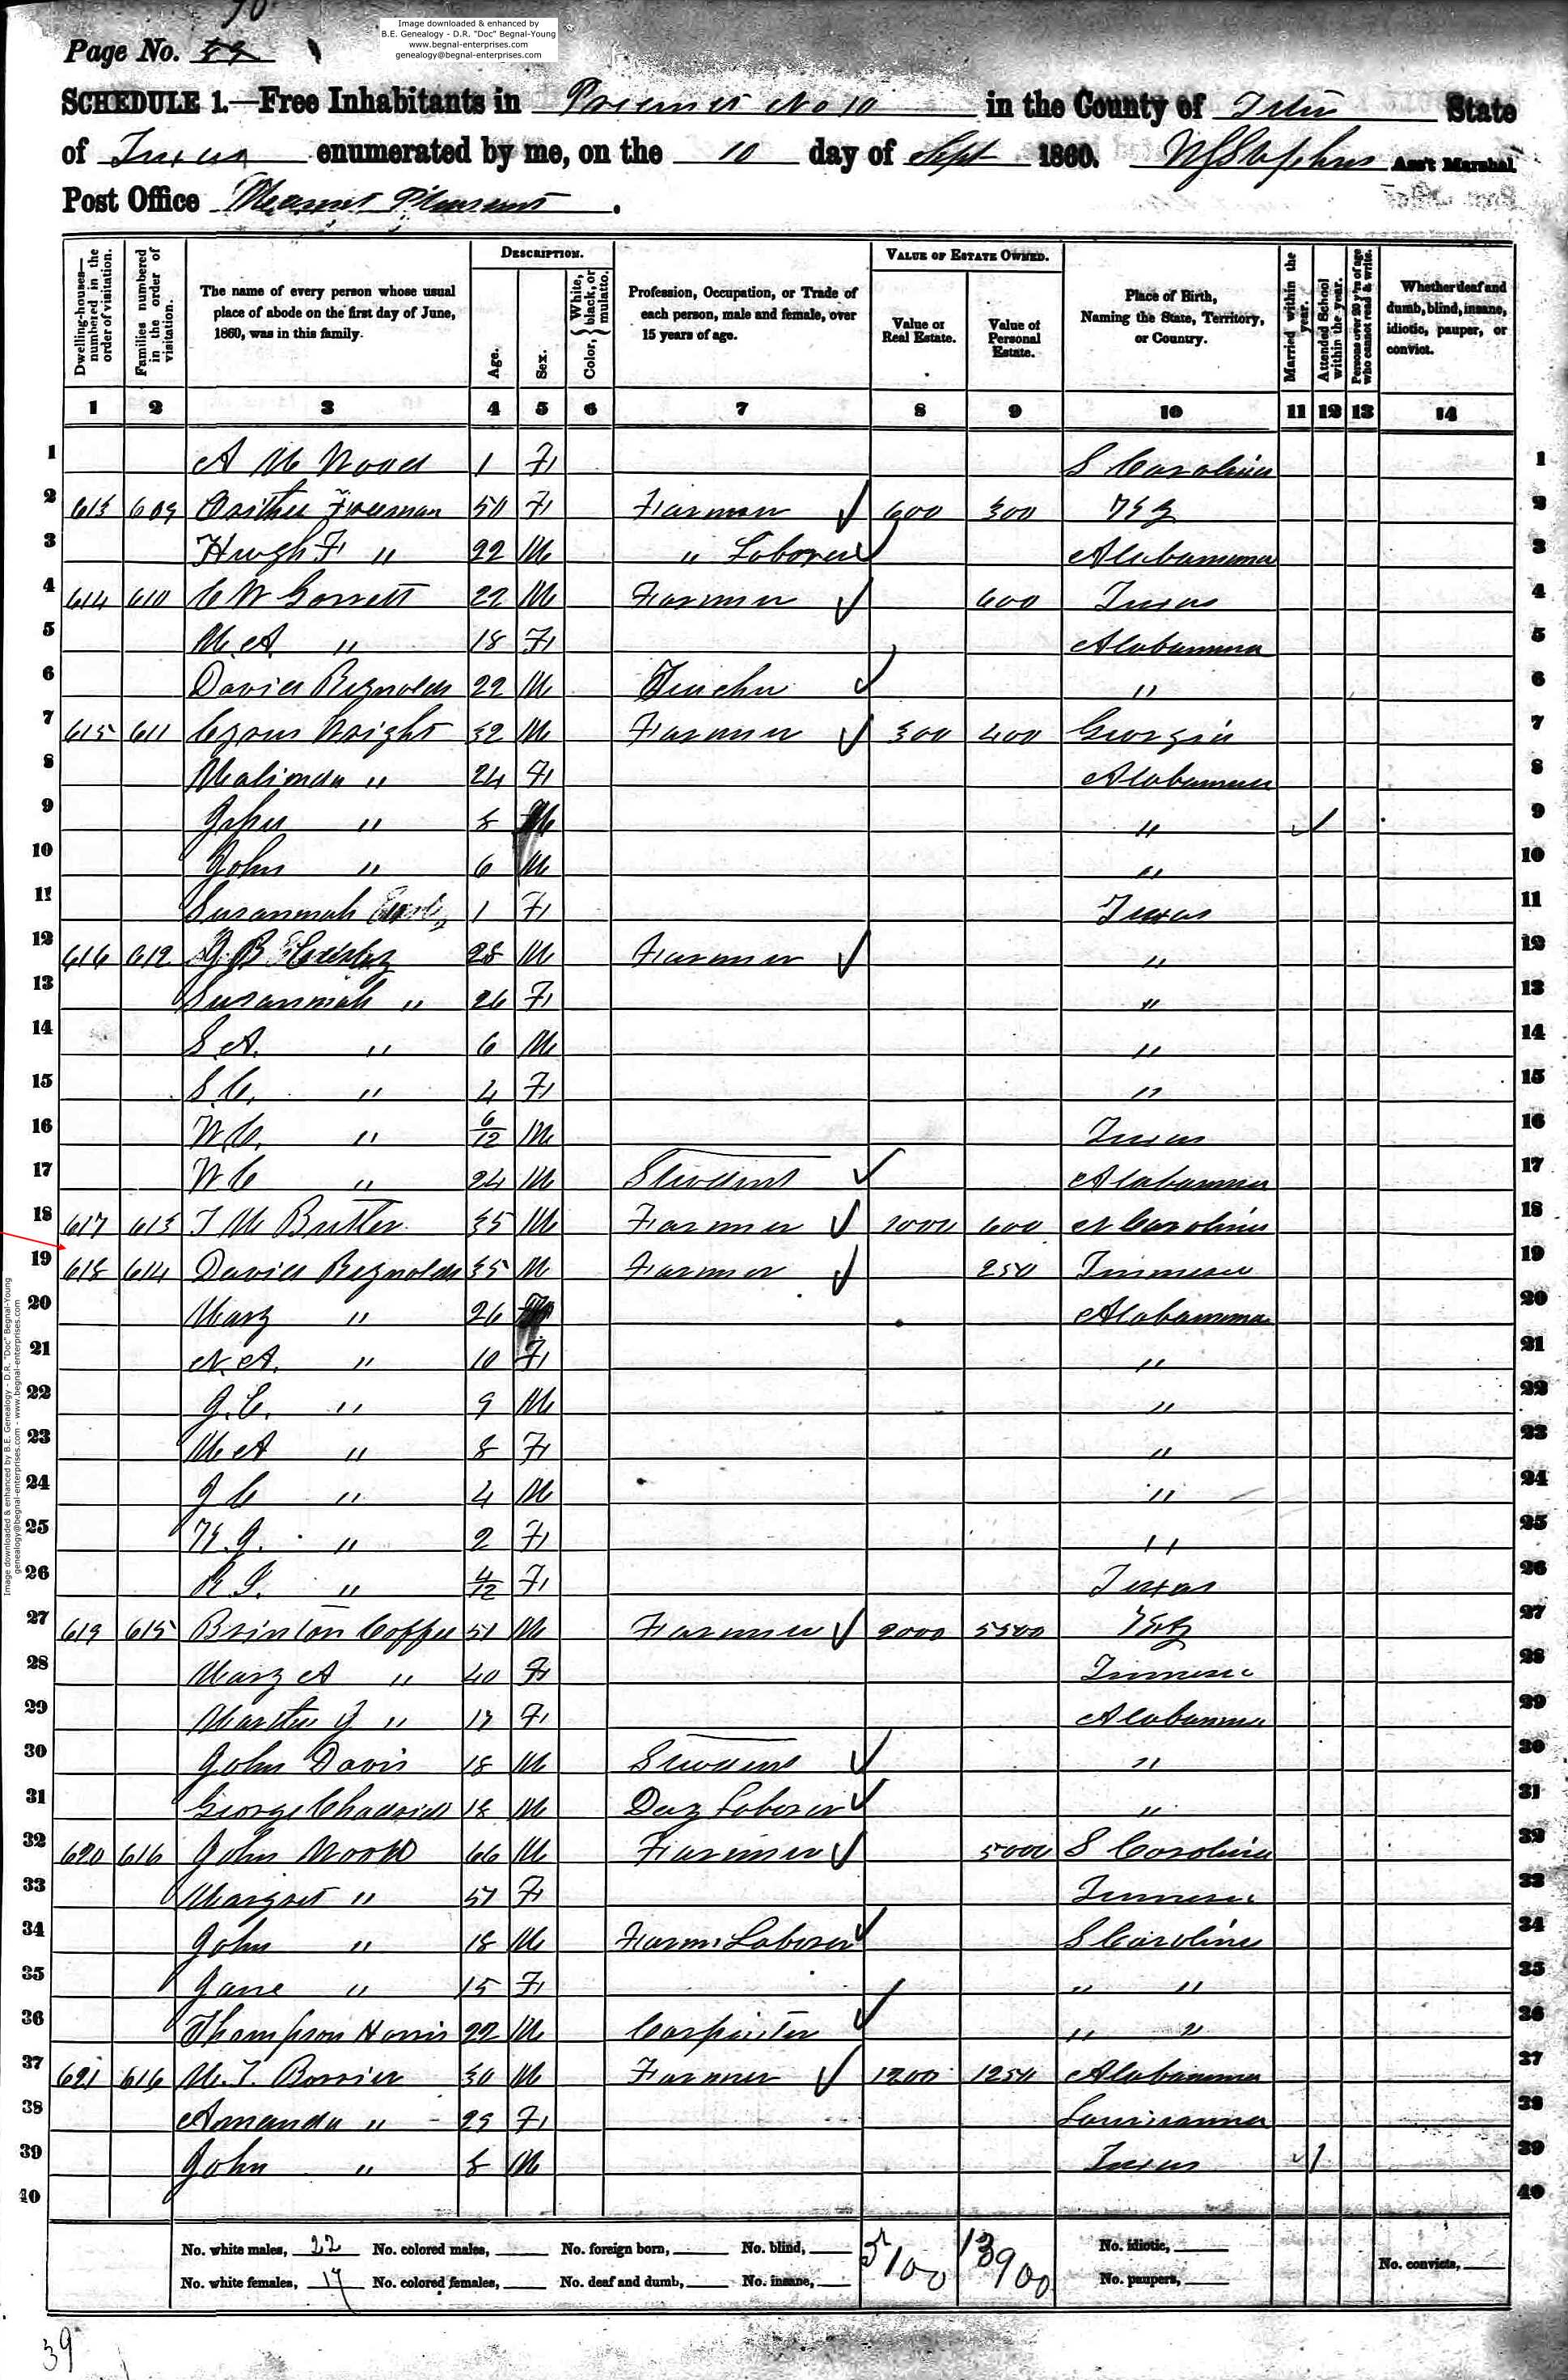 70
Page No. 69
Image downloaded & enhanced by
B.E. Genealogy - D.R. "Doc" Begnal-Young
www.begnal-enterprises.com
genealogy@begnal-enterprises.com
SCHEDULE 1.—Free Inhabitants in Precinct No 10 in the County of Titus State
of Texas enumerated by me, on the 10 day of Sept 1860. Ass't Marshal
Post Office Mount Pleasant.
Dwelling-houses—numbered in the order of visitation.
Families numbered in the order of visitation.
The name of every person whose usual place of abode on the first day of June, 1860, was in this family.
DESCRIPTION.
Age.
Sex.
Color, } White, black, or mulatto.
Profession, Occupation, or Trade of each person, male and female, over 15 years of age.
VALUE OF ESTATE OWNED.
Value of Real Estate.
Value of Personal Estate.
Place of Birth, Naming the State, Territory, or Country.
Married within the year.
Attended School within the year.
Persons over 20 y'rs of age who cannot read & write.
Whether deaf and dumb, blind, insane, idiotic, pauper, or convict.
1 2 3 4 5 6 7 8 9 10 11 12 13 14
1 A M Wood 1 F S Carolina 1
2 613 609 Freeman 50 F Farmer 600 300 Ky 2
3 Hugh F " 22 M " Laborer Alabamma 3
4 614 610 C W Garrett 22 M Farmer 600 Texas 4
5 M. A. " 18 F Alabamma 5
6 David Reynolds 22 M Teacher " 6
7 615 611 Cyrus Wright 32 M Farmer 300 400 Georgia 7
8 Malinda " 24 F Alabamma 8
9 " 8 M " 9
10 John " 6 M " 10
11 Susannah 1 F Texas 11
12 616 612 J B 28 M Farmer " 12
13 Susannah " 26 F " 13
14 S. A. " 6 M " 14
15 S. C. " 4 F " 15
16 W. C. " 6/12 M Texas 16
17 W C " 24 M Student Alabamma 17
18 617 613 T M Butler 35 M Farmer 1000 600 N Carolina 18
19 618 614 David Reynolds 35 M Farmer 250 Tennesee 19
20 Mary " 26 Alabamma 20
21 N. A. " 10 F " 21
22 J. C. " 9 M " 22
23 M A " 8 F " 23
24 J C " 4 M " 24
25 " 2 F " 25
26 " 4/12 F Texas 26
27 619 615 Brinton Coffee 51 M Farmer 2000 5500 Ky 27
28 Mary A " 40 F Tennesee 28
29 Martha J " 17 F Alabamma 29
30 John Davis 18 M Student " 30
31 George Chadrick 18 M Day Laborer " 31
32 620 616 John Wood 66 M Farmer 5000 S Carolina 32
33 Margret " 57 F Tennesee 33
34 John " 18 M Farm Laborer S Carolina 34
35 Jane " 15 F " " 35
36 Thompson Harris 22 M Carpinter " " 36
37 621 616 M. T. Borrier 30 M Farmer 1200 1250 Alabamma 37
38 Amanda " 29 F Louisianna 38
39 John " 8 M Texas 39
40 40
No. white males, 22 No. colored males, No. foreign born, No. blind, 5100 13900 No. idiotic,
No. white females, 17 No. colored females, No. deaf and dumb, No. insane, No. paupers, No. convicts,
39
Image downloaded & enhanced by B.E. Genealogy - D.R. "Doc" Begnal-Young
genealogy@begnal-enterprises.com - www.begnal-enterprises.com